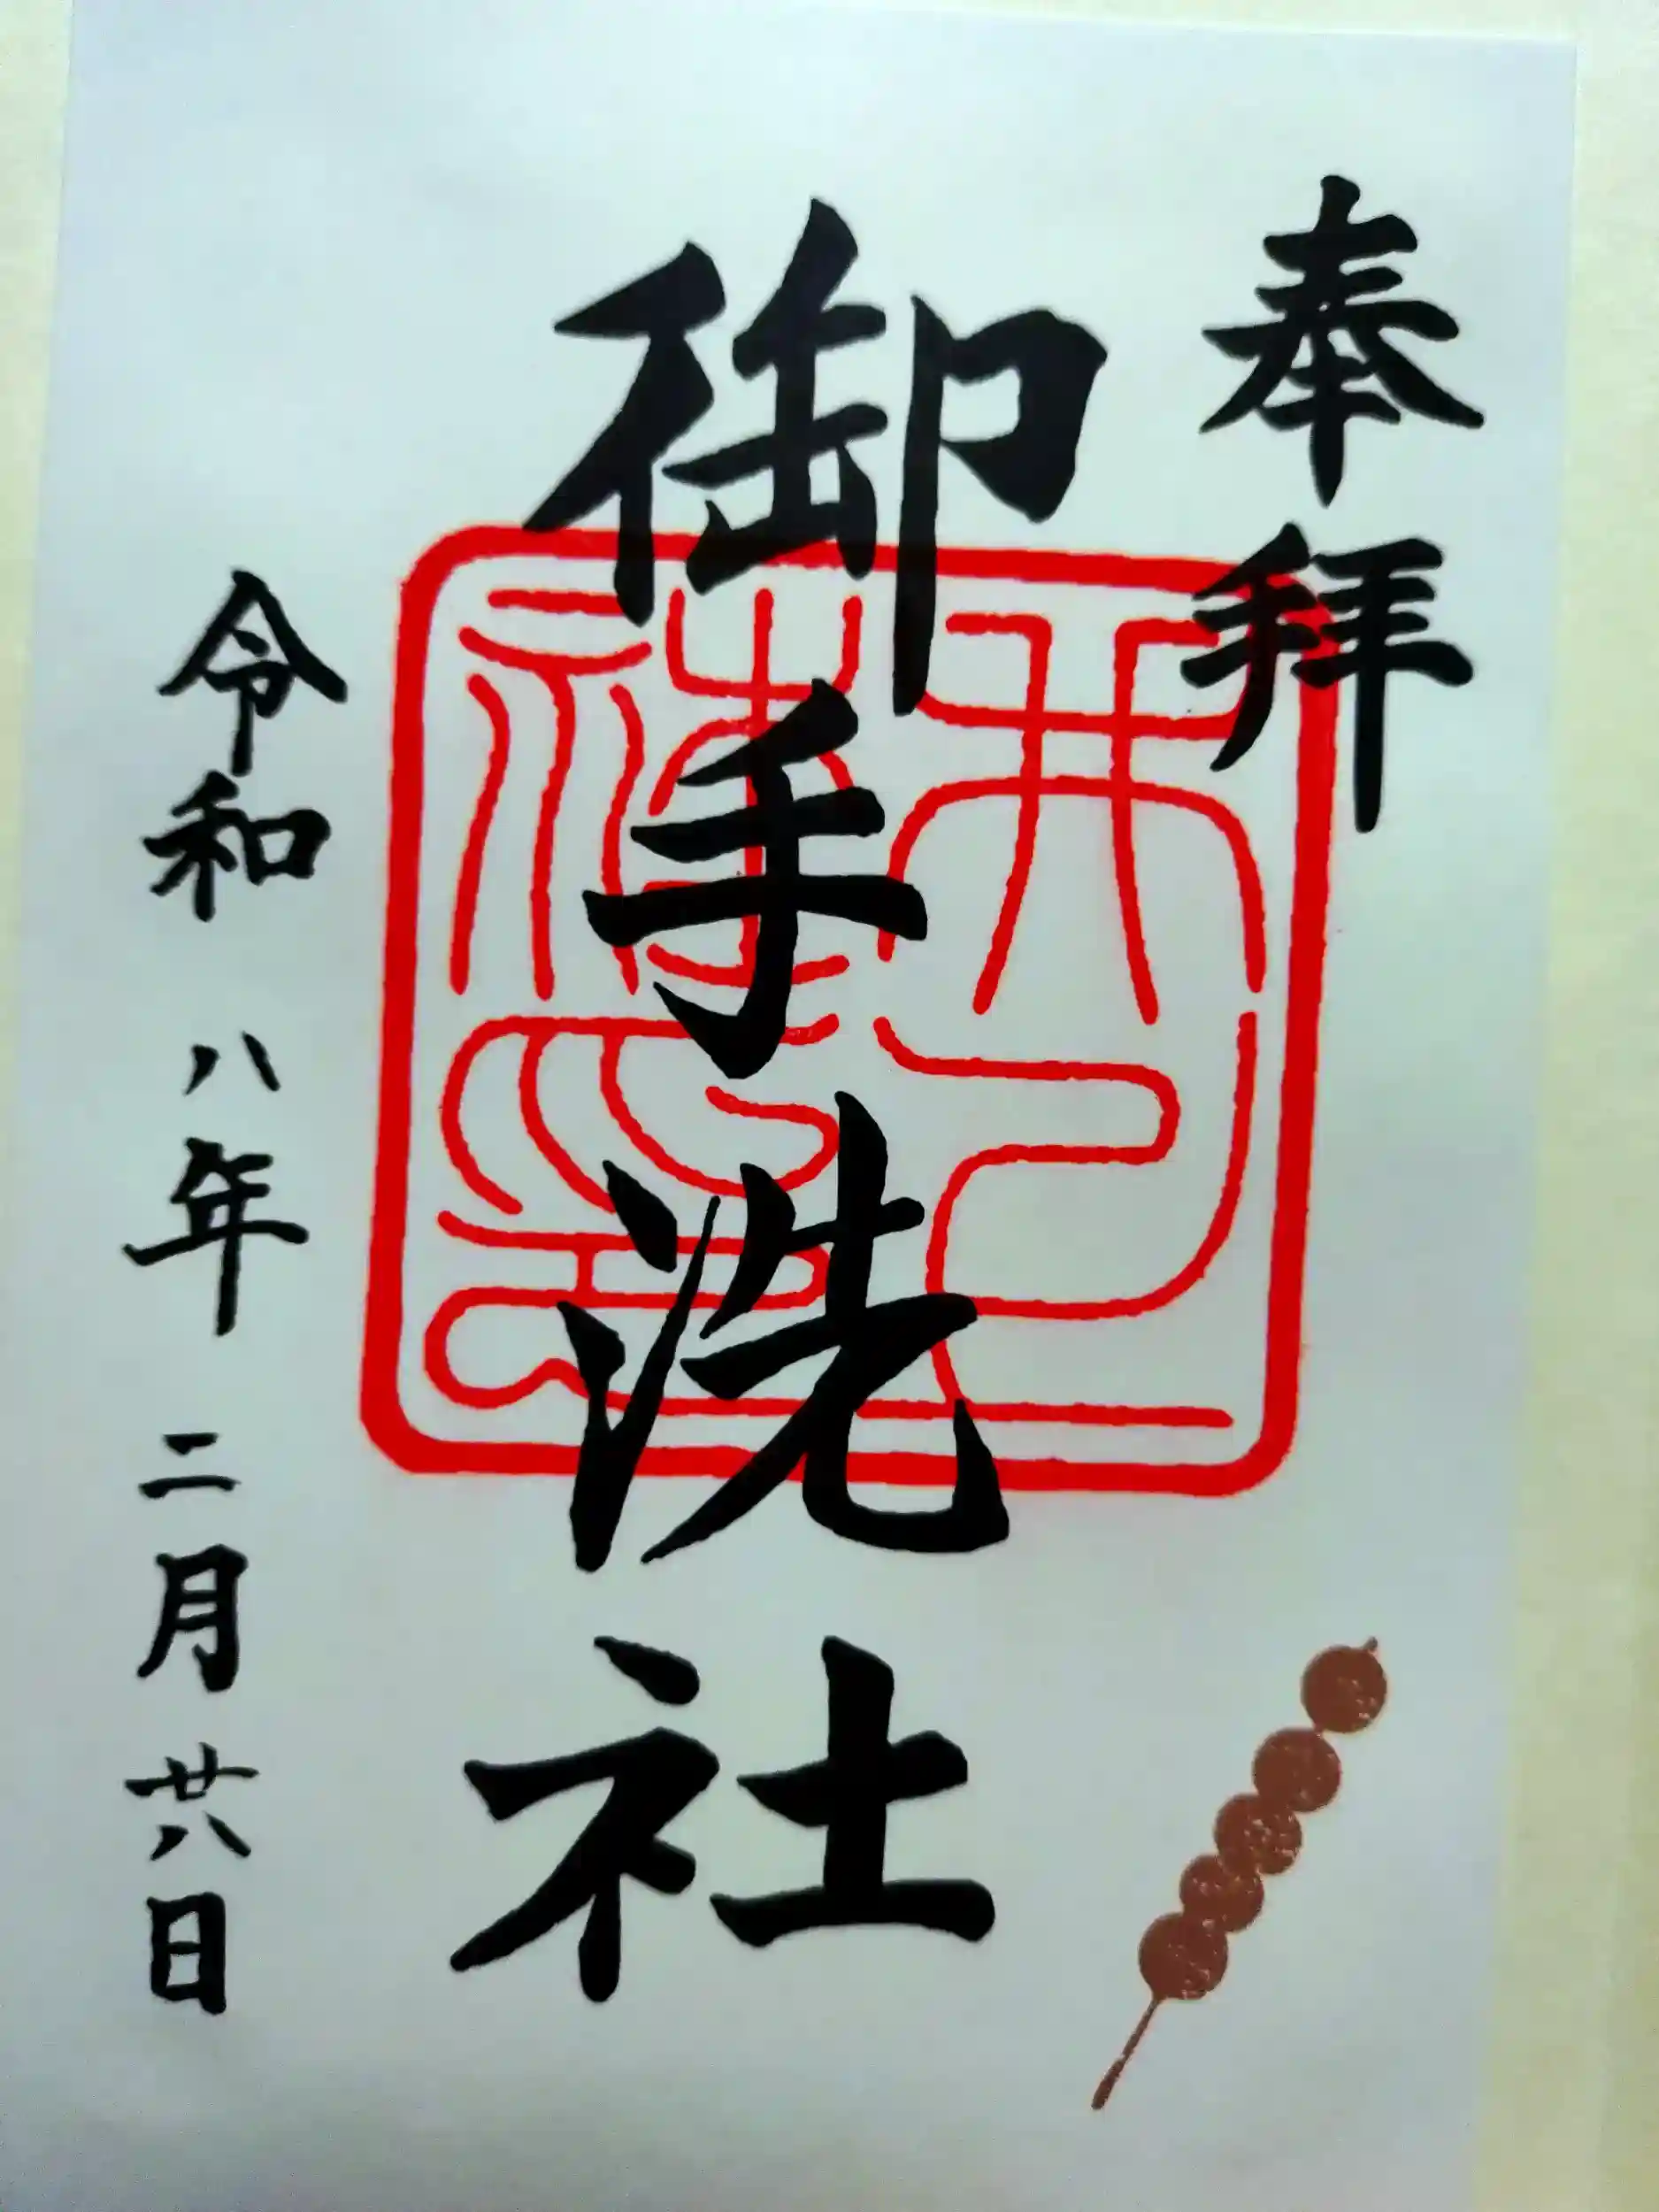 奉拝
御手洗社
令和八年二月廿八日